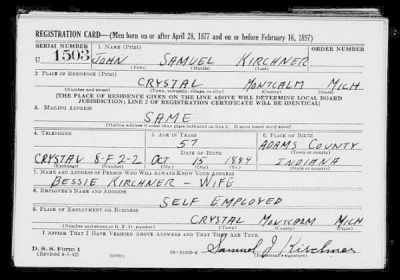 REGISTRATION CARD—(Men born on or after April 28, 1877 and on or before February 16, 1897)
SERIAL NUMBER 1. NAME (Print) ORDER NUMBER
U 1503 JOHN SAMUEL KIRCHNER
(First) (Middle) (Last)
2. PLACE OF RESIDENCE (Print)
CRYSTAL MONTCALM MICH
(Number and street) (Town, township, village, or city) (County) (State)
[THE PLACE OF RESIDENCE GIVEN ON THE LINE ABOVE WILL DETERMINE LOCAL BOARD
JURISDICTION; LINE 2 OF REGISTRATION CERTIFICATE WILL BE IDENTICAL]
3. MAILING ADDRESS
SAME
[Mailing address if other than place indicated on line 2. If same insert word same]
4. TELEPHONE 5. AGE IN YEARS 6. PLACE OF BIRTH
57 ADAMS COUNTY
DATE OF BIRTH (Town or county)
CRYSTAL 8-F2-2 OCT 15 1884 INDIANA
(Exchange) (Number) (Mo.) (Day) (Yr.) (State or country)
7. NAME AND ADDRESS OF PERSON WHO WILL ALWAYS KNOW YOUR ADDRESS
BESSIE KIRCHNER - WIFE
8. EMPLOYER'S NAME AND ADDRESS
SELF EMPLOYED
9. PLACE OF EMPLOYMENT OR BUSINESS
CRYSTAL MONTCALM MICH
(Number and street or R. F. D. number) (Town) (County) (State)
I AFFIRM THAT I HAVE VERIFIED ABOVE ANSWERS AND THAT THEY ARE TRUE.
D. S. S. Form 1
(Revised 4-1-42) (over) Samuel J Kirchner